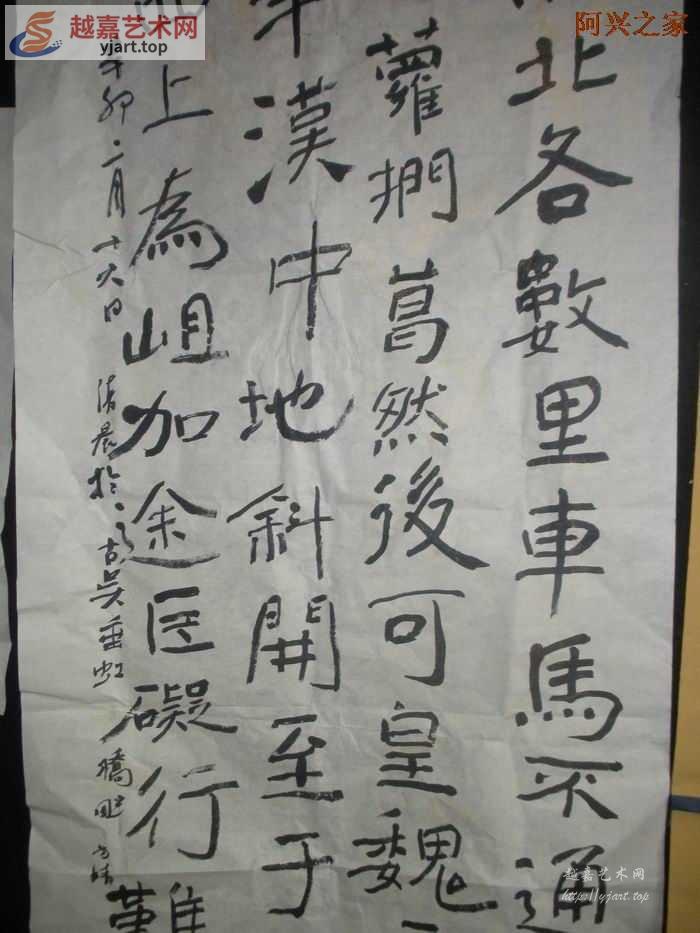 越嘉艺术网
yjart.top
阿兴之家
北各數里車馬不通
蘿捫葛然後可皇魏
漢中地斜開至于
上為岨加途𨺅礙行難
卯二月十六日 清晨於古吳垂虹橋畔
越嘉艺术网
http://yjart.top